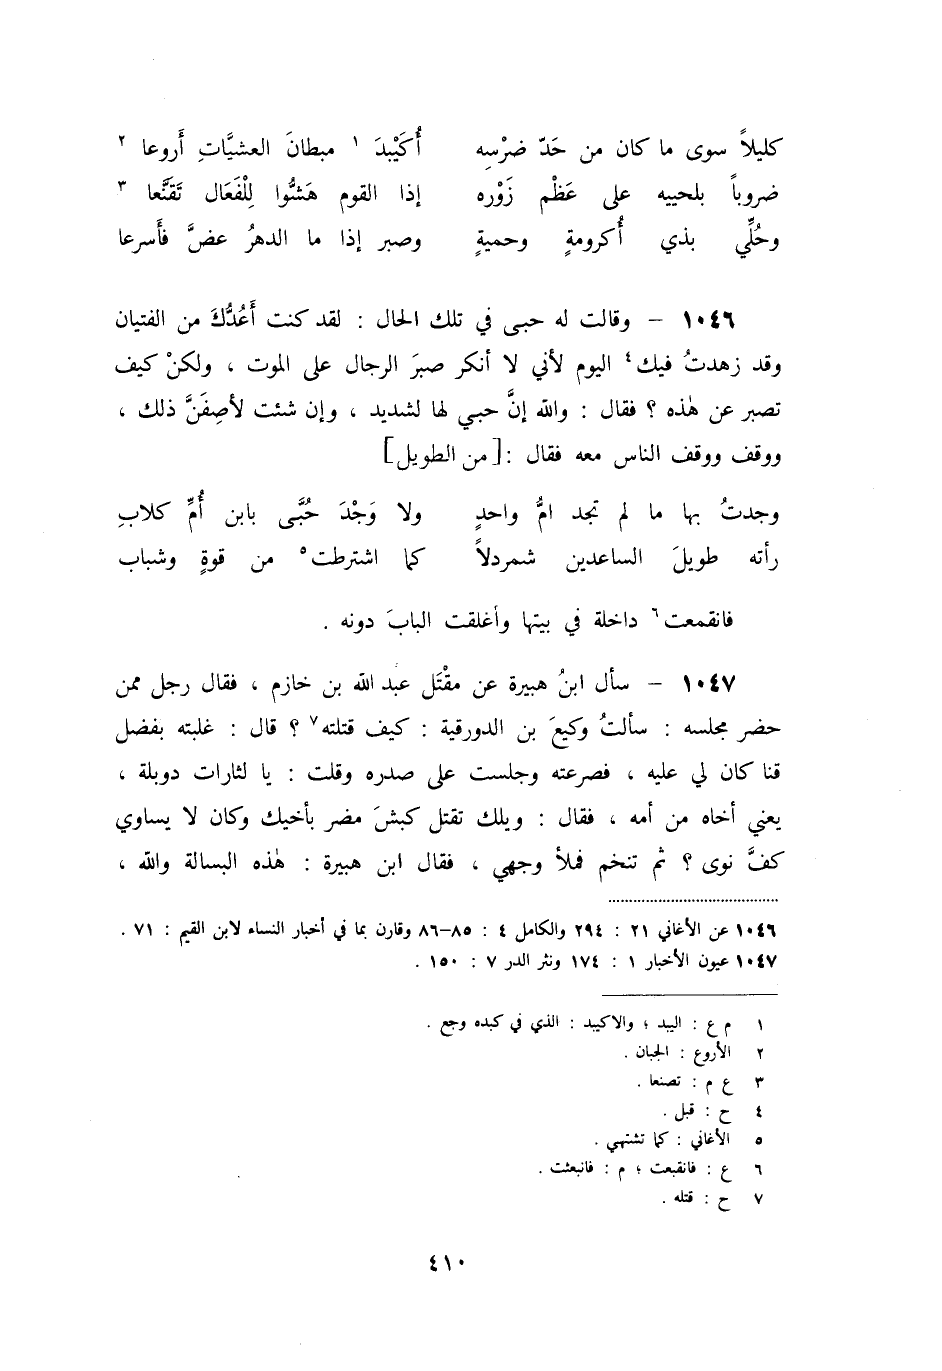 كليلاً سوى ما كان من حَدّ ضرْسِه أُكَيْبدَ ١ مبطانَ العشيَّاتِ أَروعا ٢
ضروباً بلحييه على عَظْم زَوْره إذا القوم هَشُّوا لِلْفَعَال تَقَنَّعا ٣
وحُلِّي بذي أُكرومةٍ وحميةٍ وصبر إذا ما الدهرُ عضَّ فأَسرعا
١٠٤٦ – وقالت له حبى في تلك الحال : لقد كنت أَعُدُّكَ من الفتيان
وقد زهدتُ فيك٤ اليوم لأني لا أنكر صبرَ الرجال على الموت ، ولكنْ كيف
تصبر عن هٰذه ؟ فقال : والله إنَّ حبي لها لشديد ، وإن شئت لأصِفَنَّ ذلك ،
ووقف ووقف الناس معه فقال :[من الطويل]
وجدتُ بها ما لم تجد امُّ واحدٍ ولا وَجْدَ حُبَّى بابن أُمِّ كلابِ
رأته طويلَ الساعدين شمردلاً كما اشترطت٥ من قوةٍ وشباب
فانقمعت٦ داخلة في بيتها وأغلقت البابَ دونه .
١٠٤٧ – سأل ابنُ هبيرة عن مقْتَل عبد الله بن خازم ، فقال رجل ممن
حضر مجلسه : سألتُ وكيعَ بن الدورقية : كيف قتلته٧ ؟ قال : غلبته بفضل
قنا كان لي عليه ، فصرعته وجلست على صدره وقلت : يا لثارات دوبلة ،
يعني أخاه من أمه ، فقال : ويلك تقتل كبشَ مضر بأخيك وكان لا يساوي
كفَّ نوى ؟ ثم تنخم فملأ وجهي ، فقال ابن هبيرة : هٰذه البسالة والله ،
١٠٤٦ عن الأغاني ٢١ : ٢٩٤ والكامل ٤ : ٨٥–٨٦ وقارن بما في أخبار النساء لابن القيم : ٧١ .
١٠٤٧ عيون الأخبار ١ : ١٧٤ ونثر الدر ٧ : ١٥٠ .
١ م ع : البيد ؛ والاكيبد : الذي في كبده وجع .
٢ الأروع : الجبان .
٣ ع م : تصنعا .
٤ ح : قبل .
٥ الأغاني : كما تشتهي .
٦ ع : فانقبعت ؛ م : فانبعثت .
٧ ح : قتله .
٤١٠